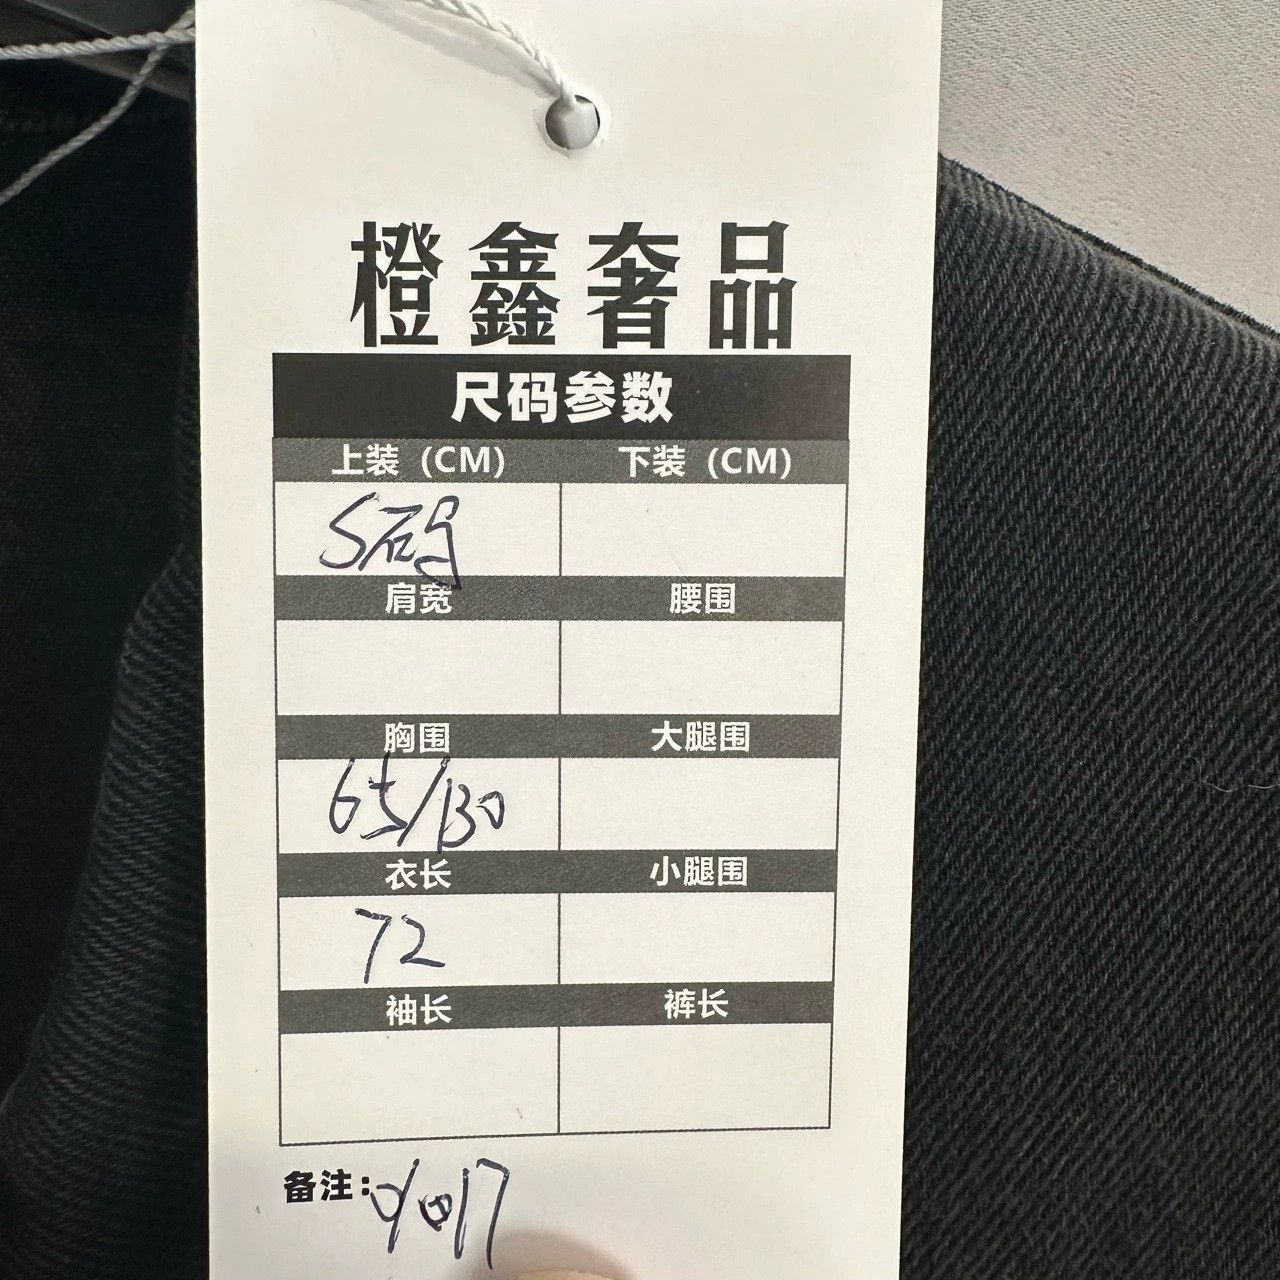 橙鑫奢品
尺码参数
上装 (CM) 下装 (CM)
S码
肩宽 腰围
胸围 大腿围
65/130
衣长 小腿围
72
袖长 裤长
备注: